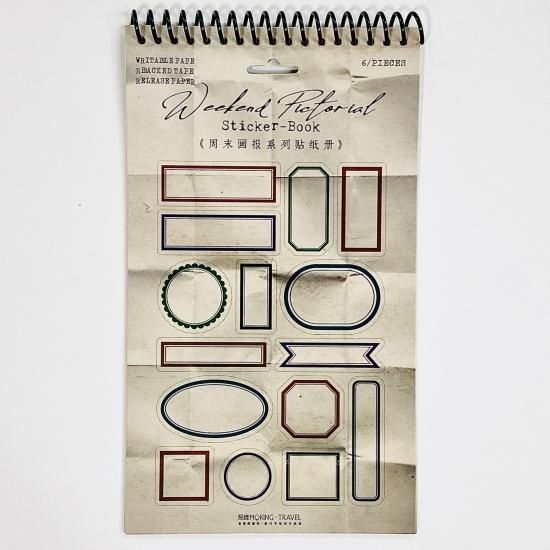 WRITABLE PAPE
RBACKED TAPE
RELEASE PAPER
6/PIECES
Weekend Pictorial
Sticker-Book
《周末画报系列贴纸册》
MOKING-TRAVEL